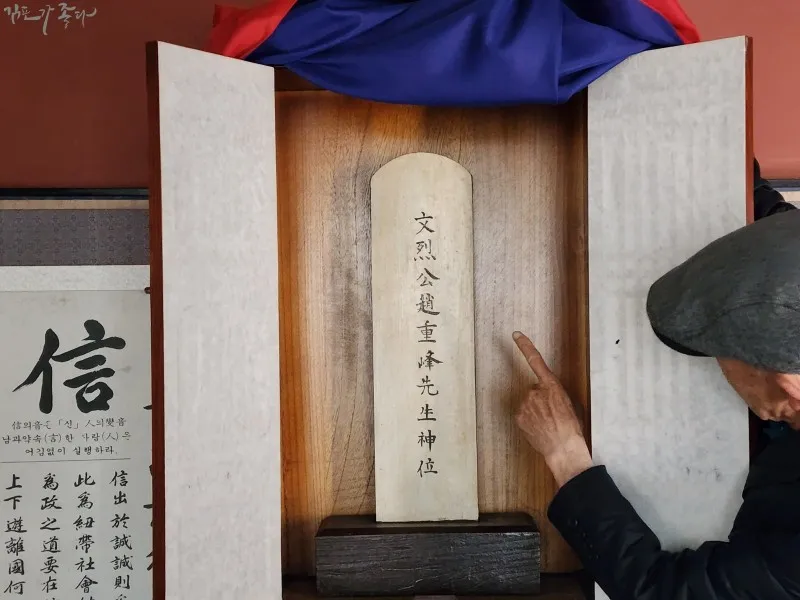 김포가 좋다
文烈公趙重峰先生神位
信
信의音은「신」人의變音
남과약속(言)한 사람(人)은
어김없이 실행하라.
信出於誠誠則
此爲紐帶社會
爲政之道要在
上下遊離國何